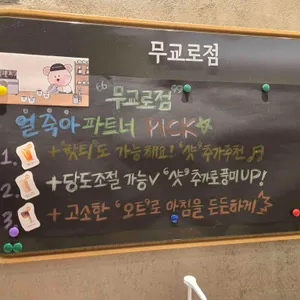 무교로점
"무교로점"
얼죽아 파트너 PICK
1. + "핫티"도 가능해요! "샷" 추가추천
2. + 당도조절 가능 "샷" 추가로 풍미UP!
3. + 고소한 "오트"로 아침을 든든하게